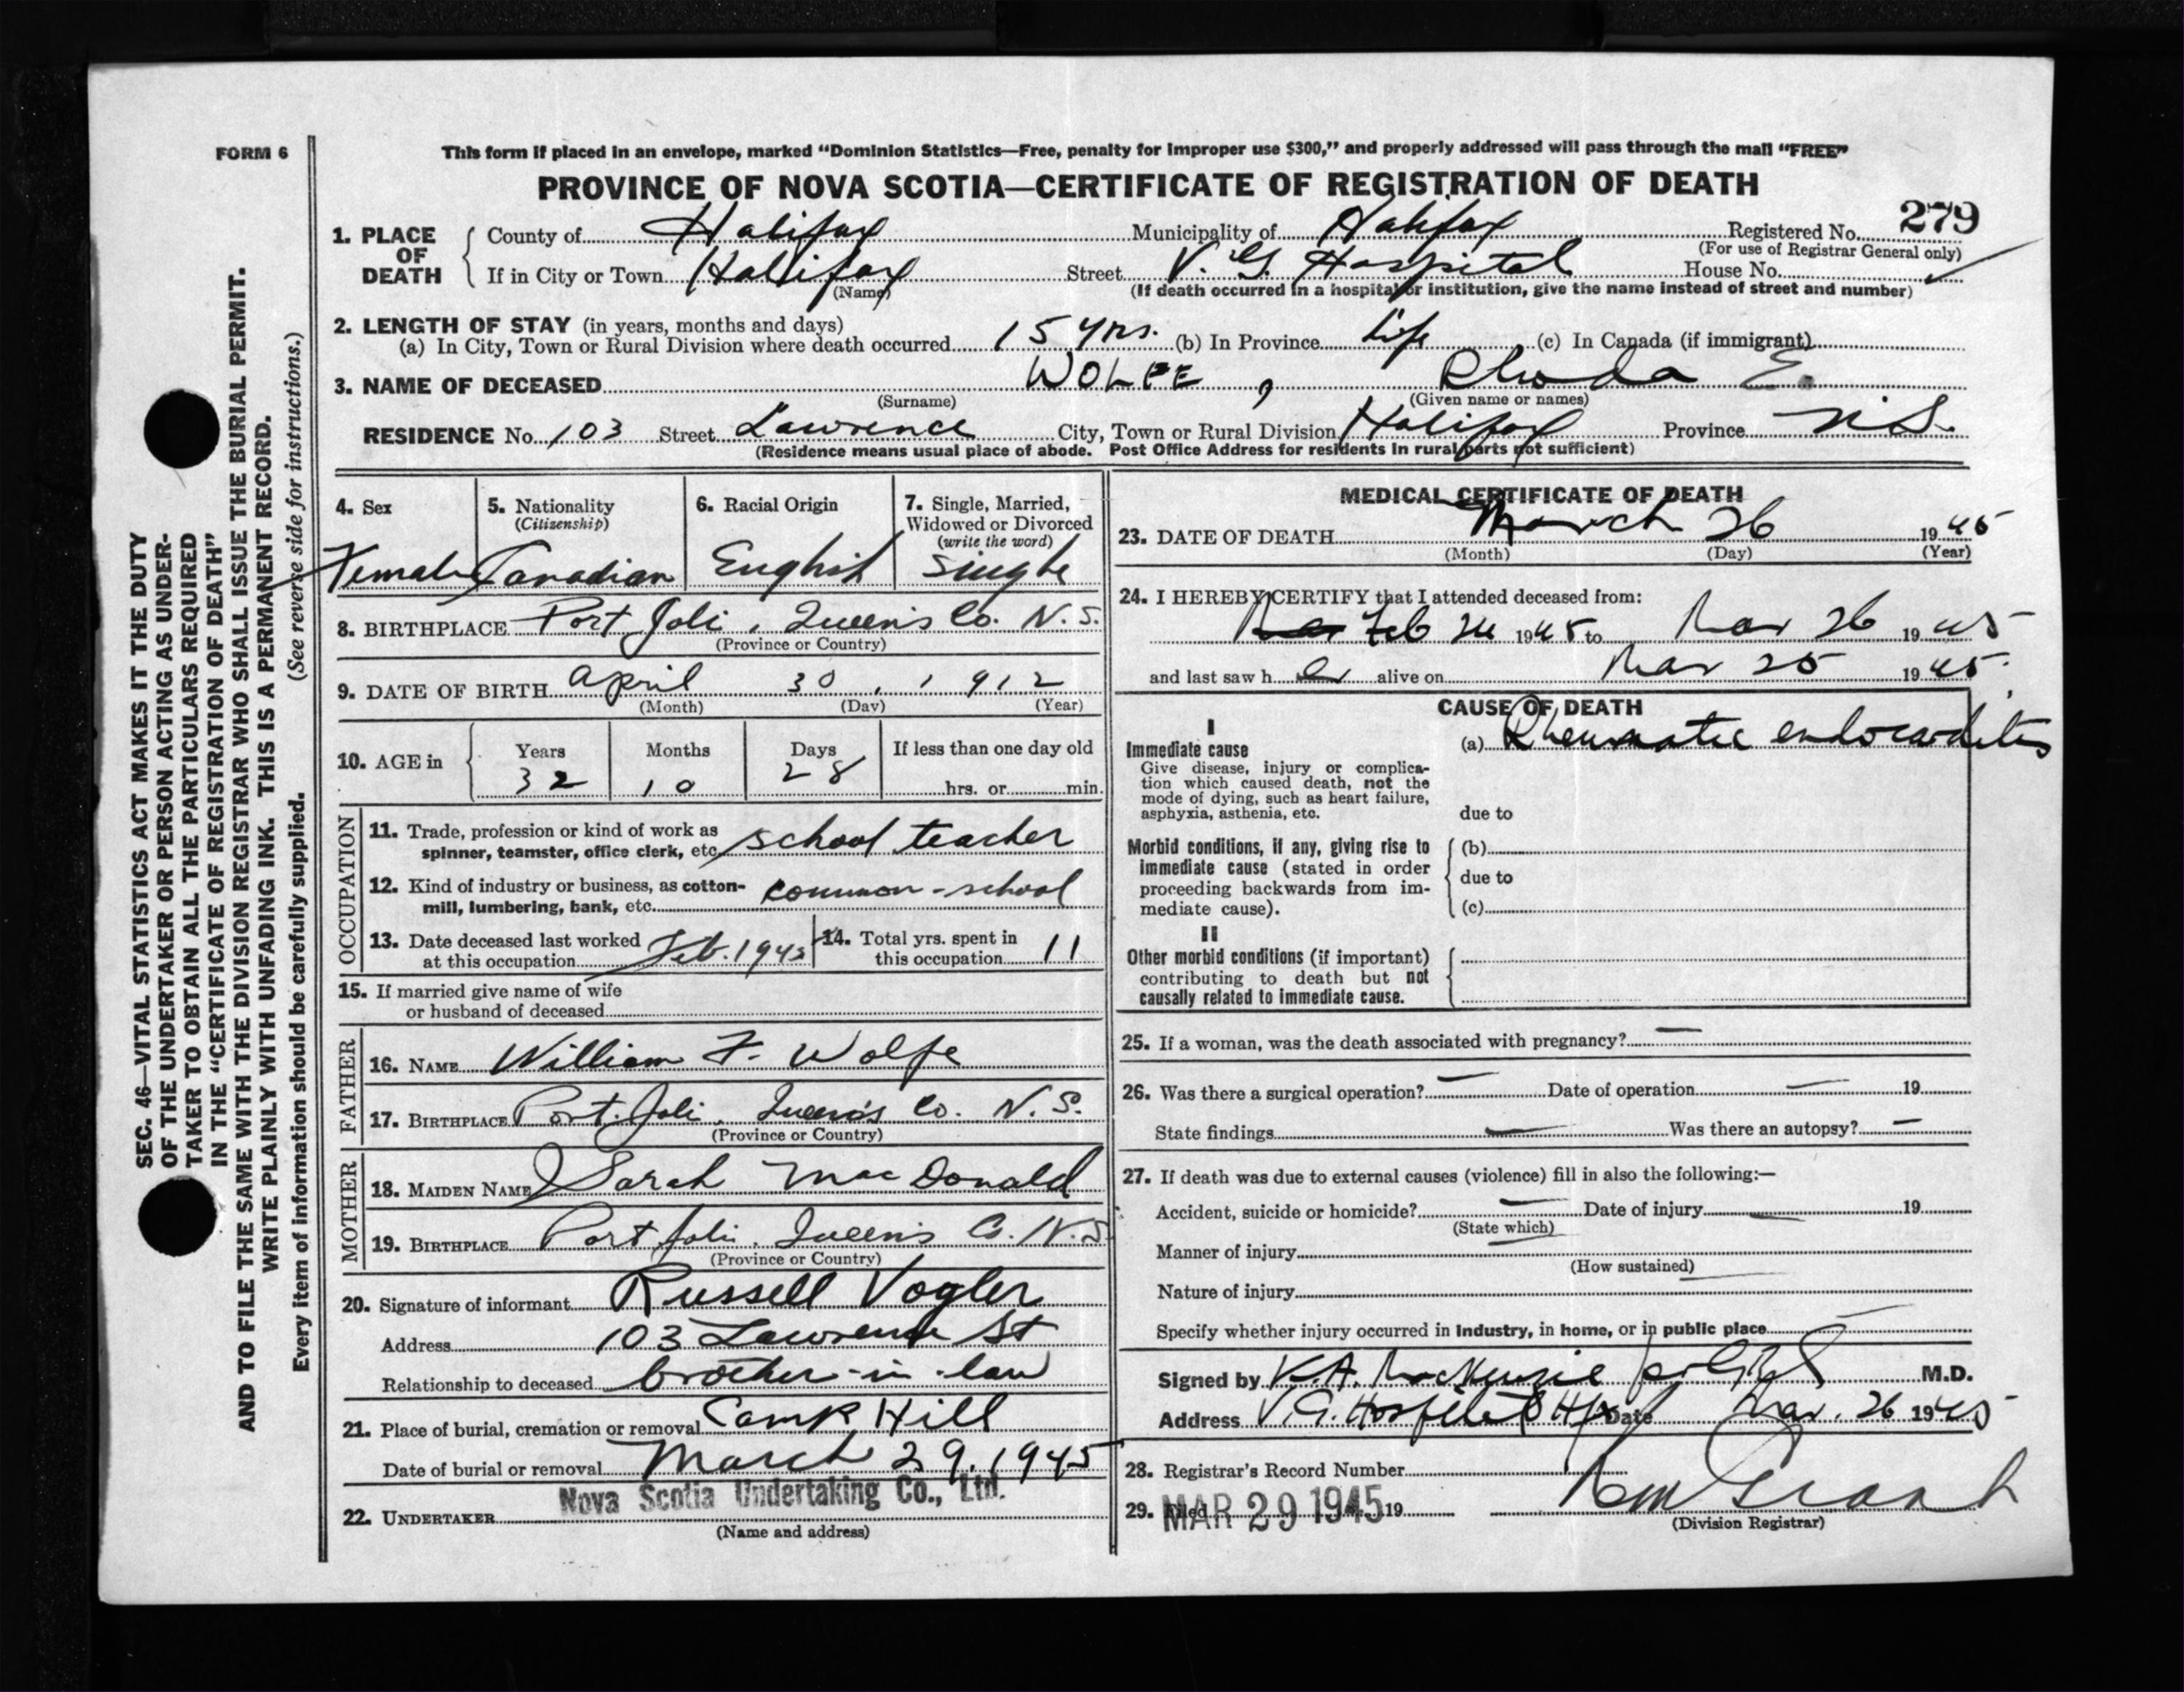 FORM 6
This form if placed in an envelope, marked "Dominion Statistics—Free, penalty for improper use $300," and properly addressed will pass through the mail "FREE"
PROVINCE OF NOVA SCOTIA—CERTIFICATE OF REGISTRATION OF DEATH
279
1. PLACE OF DEATH County of Halifax Municipality of Halifax Registered No.
(For use of Registrar General only)
If in City or Town Halifax Street V. G. Hospital House No.
(Name) (If death occurred in a hospital or institution, give the name instead of street and number)
2. LENGTH OF STAY (in years, months and days)
(a) In City, Town or Rural Division where death occurred 15 yrs. (b) In Province Life (c) In Canada (if immigrant)
3. NAME OF DECEASED WOLFE, Rhoda E.
(Surname) (Given name or names)
RESIDENCE No. 103 Street Lawrence City, Town or Rural Division Halifax Province N.S.
(Residence means usual place of abode. Post Office Address for residents in rural parts not sufficient)
4. Sex
Female
5. Nationality
(Citizenship)
Canadian
6. Racial Origin
English
7. Single, Married,
Widowed or Divorced
(write the word)
Single
8. BIRTHPLACE Port Joli, Queen's Co. N.S.
(Province or Country)
9. DATE OF BIRTH April 30, 1912
(Month) (Day) (Year)
10. AGE in Years Months Days If less than one day old
32 10 28 hrs. or min.
OCCUPATION
11. Trade, profession or kind of work as
spinner, teamster, office clerk, etc. school teacher
12. Kind of industry or business, as cotton-
mill, lumbering, bank, etc. common-school
13. Date deceased last worked
at this occupation Feb. 1945
14. Total yrs. spent in
this occupation 11
15. If married give name of wife
or husband of deceased
FATHER
16. NAME William F. Wolfe
17. BIRTHPLACE Port Joli, Queen's Co. N.S.
(Province or Country)
MOTHER
18. MAIDEN NAME Sarah MacDonald
19. BIRTHPLACE Port Joli, Queen's Co. N.S.
(Province or Country)
20. Signature of informant Russell Vogler
Address 103 Lawrence St
Relationship to deceased brother-in-law
21. Place of burial, cremation or removal Camp Hill
Date of burial or removal March 29, 1945
Nova Scotia Undertaking Co., Ltd.
22. UNDERTAKER
(Name and address)
MEDICAL CERTIFICATE OF DEATH
23. DATE OF DEATH March 26 1945
(Month) (Day) (Year)
24. I HEREBY CERTIFY that I attended deceased from:
Feb 24 1945 to Mar 26 1945
and last saw her alive on Mar 25 1945
CAUSE OF DEATH
I
Immediate cause
Give disease, injury or complica-
tion which caused death, not the
mode of dying, such as heart failure,
asphyxia, asthenia, etc.
(a) Rheumatic endocarditis
due to
Morbid conditions, if any, giving rise to
immediate cause (stated in order
proceeding backwards from im-
mediate cause).
(b)
due to
(c)
II
Other morbid conditions (if important)
contributing to death but not
causally related to immediate cause.
25. If a woman, was the death associated with pregnancy? —
26. Was there a surgical operation? — Date of operation — 19
State findings — Was there an autopsy? —
27. If death was due to external causes (violence) fill in also the following:—
Accident, suicide or homicide? — Date of injury — 19
(State which)
Manner of injury
(How sustained)
Nature of injury
Specify whether injury occurred in industry, in home, or in public place
Signed by K.A. MacKenzie M.D.
Address V.G. Hospital Hfx Date Mar. 26 1945
28. Registrar's Record Number
29. Filed MAR 29 1945 19
(Division Registrar)
SEC. 46—VITAL STATISTICS ACT MAKES IT THE DUTY
OF THE UNDERTAKER OR PERSON ACTING AS UNDER-
TAKER TO OBTAIN ALL THE PARTICULARS REQUIRED
IN THE "CERTIFICATE OF REGISTRATION OF DEATH"
AND TO FILE THE SAME WITH THE DIVISION REGISTRAR WHO SHALL ISSUE THE BURIAL PERMIT.
WRITE PLAINLY WITH UNFADING INK. THIS IS A PERMANENT RECORD.
Every item of information should be carefully supplied. (See reverse side for instructions.)